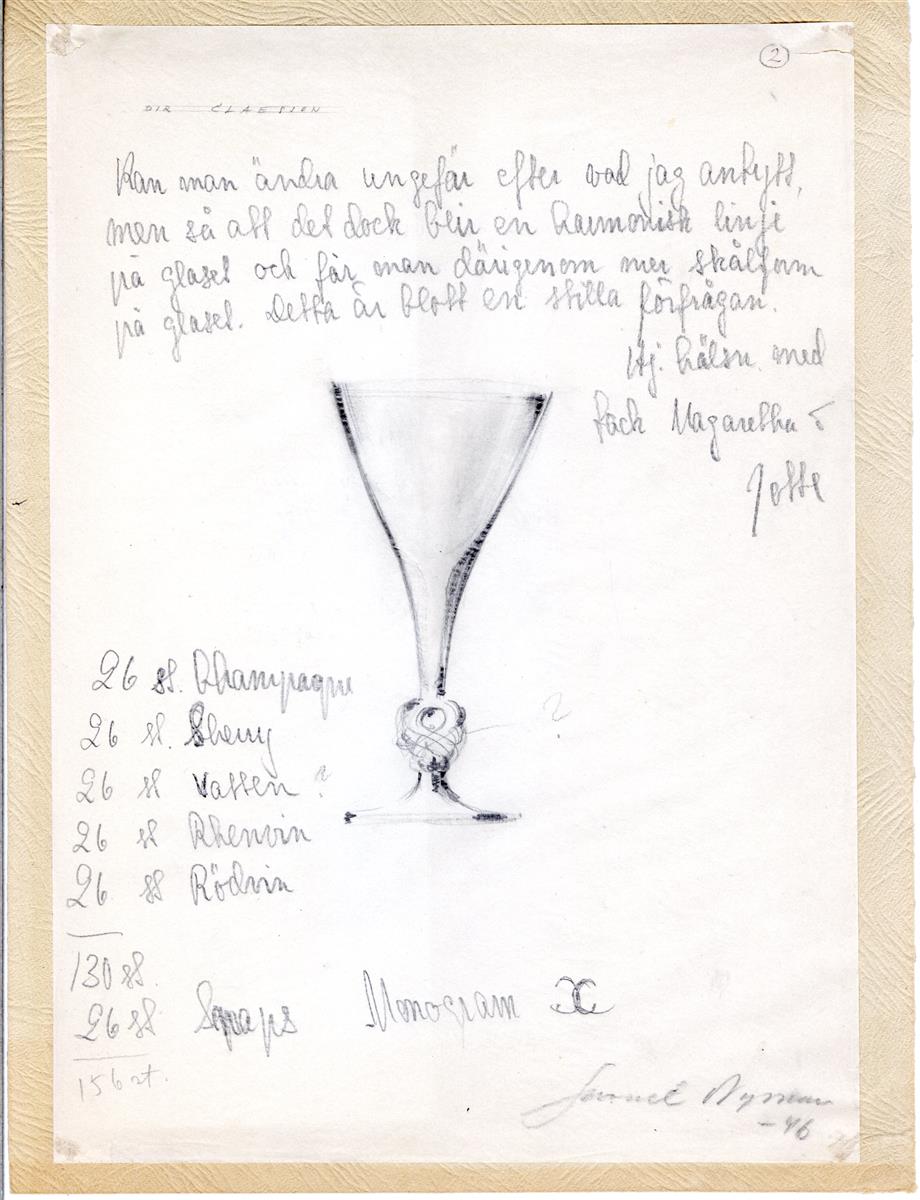 2
DIR CLAESSON
Kan man ändra ungefär efter vad jag antytt,
men så att det dock blir en harmonisk linje
på glaset och får man därigenom mer skålform
på glaset. Detta är blott en stilla förfrågan.
Hj. hälsn. med
tack Magaretha o
Jotte
26 st. Champagne
?
26 st. Sherry
26 st Vatten ?
26 st Rhenvin
26 st Rödvin
130 st.
26 st Snaps Monogram CC
156 st.
Nyman
-46